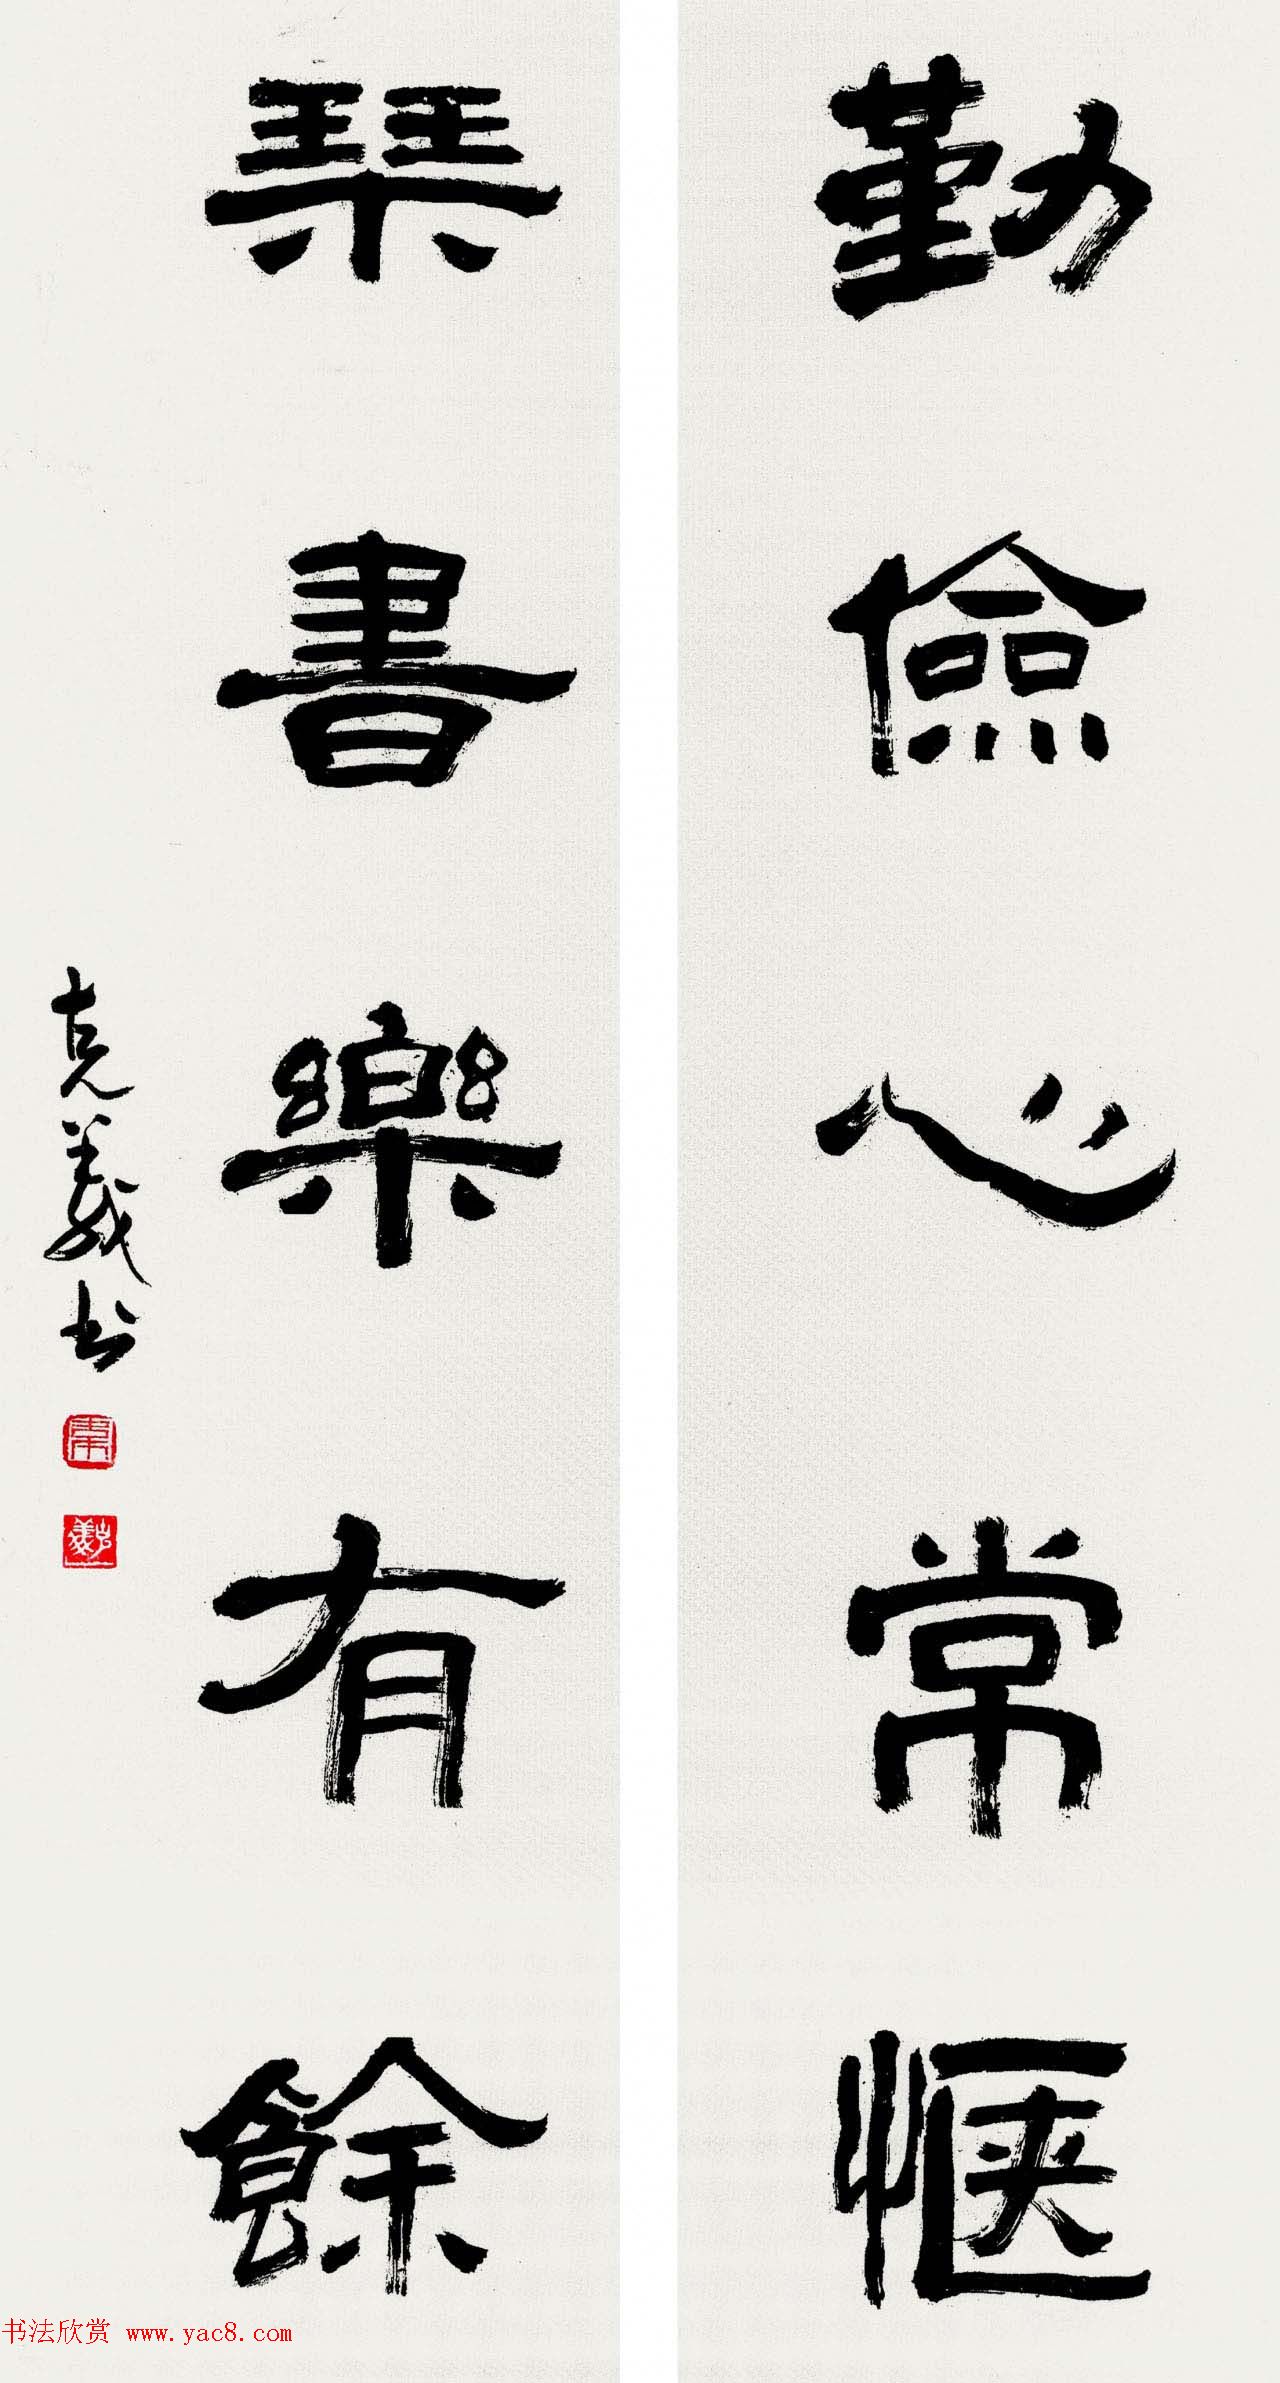 勤儉心常惬
琴書樂有餘
克義书
书法欣赏 www.yac8.com